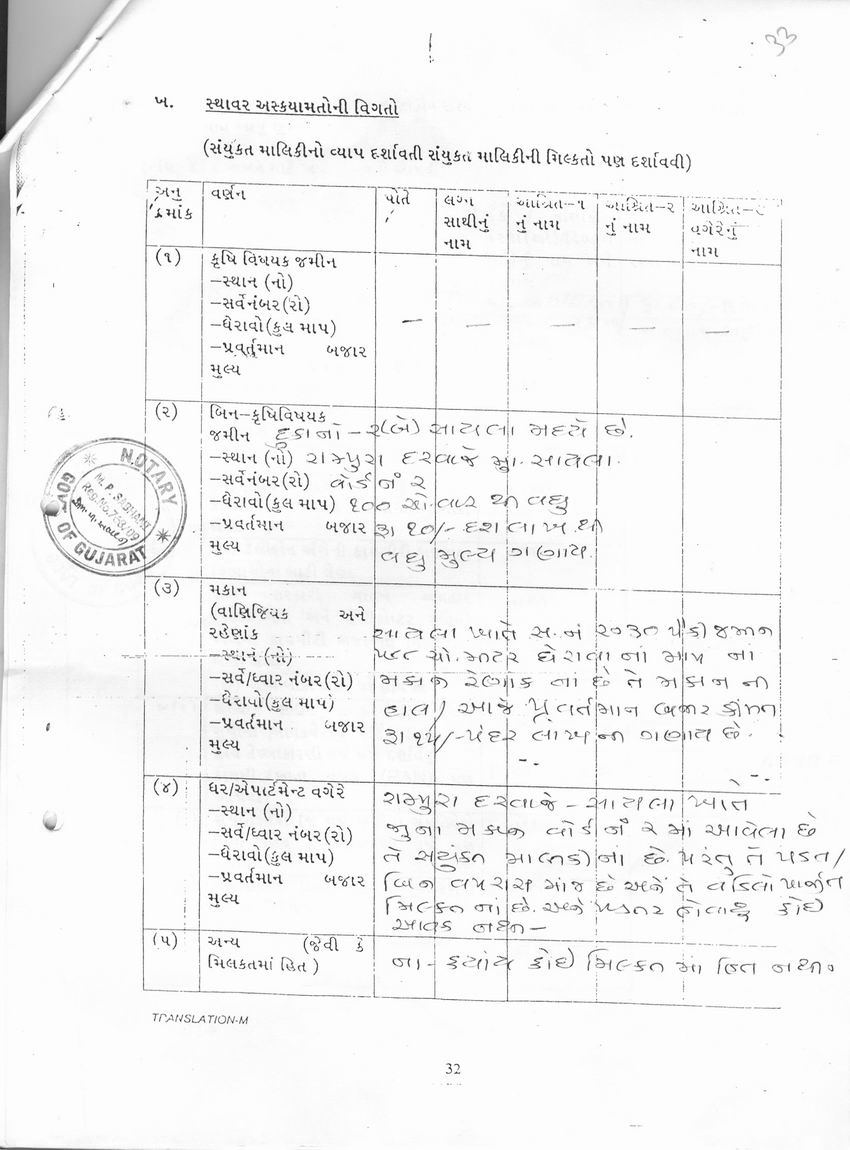 33
ખ. સ્થાવર અસ્કયામતોની વિગતો
(સંયુકત માલિકીનો વ્યાપ દર્શાવતી સંયુકત માલિકીની મિલ્કતો પણ દર્શાવવી)
અનુ ક્રમાંક વર્ણન પોતે લગ્ન સાથીનું નામ આશ્રિત-૧ નું નામ આશ્રિત-૨ નું નામ આશ્રિત-૮ વગેરેનું નામ
(૧) કૃષિ વિષયક જમીન
-સ્થાન (નો)
-સર્વેનંબર(રો)
-ઘેરાવો(કુલ માપ) — — — — —
-પ્રવર્તુમાન બજાર
મુલ્ય
(૨) બિન-કૃષિવિષયક
જમીન દુકાનો - ૨(બે) સાયલા મધ્યે છે.
-સ્થાન (નો) રામપુરા દરવાજે મુ. સાયલા.
-સર્વેનંબર(રો) વોર્ડ નં ૨
-ઘેરાવો(કુલ માપ) ૧૦૦ ચો. વાર થી વધુ
-પ્રવર્તમાન બજાર રૂા ૧૦/- દશ લાખ થી
મુલ્ય વધુ મુલ્ય ગણાય.
(૩) મકાન
(વાણિજિયક અને
રહેણાંક સાયલા ખાતે સ. નં ૨૦૩૦ પૈકી જમીન
-સ્થાન (નો) ચો. મીટર ઘેરાવા નાં માપ ના
-સર્વે/ધ્વાર નંબર(રો) મકાન રેણાક નાં છે તે મકાન ની
-ઘેરાપો(કુલ માપ) હાલ/આજે પ્રવર્તમાન બજાર કીંમત
-પ્રવર્તમાન બજાર રૂા ૧૫/- પંદર લાખ ની ગણાય છે.
મુલ્ય
(૪) ઘર/એપાર્ટમેન્ટ વગેરે રામપુરા દરવાજે - સાયલા ખાતે
-સ્થાન (નો) જુના મકાન વોર્ડ નં ૨ માં આવેલા છે
-સર્વે/ધ્વાર નંબર(રો) તે સયુંકત માલીકી નાં છે. પરંતુ તે પડતર/
-ઘેરાવો(કુલ માપ) બિન વપરાશ માંજ છે અને તે વડિલો પાર્જીત
-પ્રવર્તમાન બજાર મિલ્કત નાં છે. અને પડતર હોવાથી કોઈ
મુલ્ય આવક નથી -
(૫) અન્ય (જેવી કે ના - કયાંય કોઈ મિલ્કત માં હિત નથી.
મિલકતમાં હિત )
NOTARY
M. P. SABHANI
GOVT. OF GUJARAT
TRANSLATION-M
32